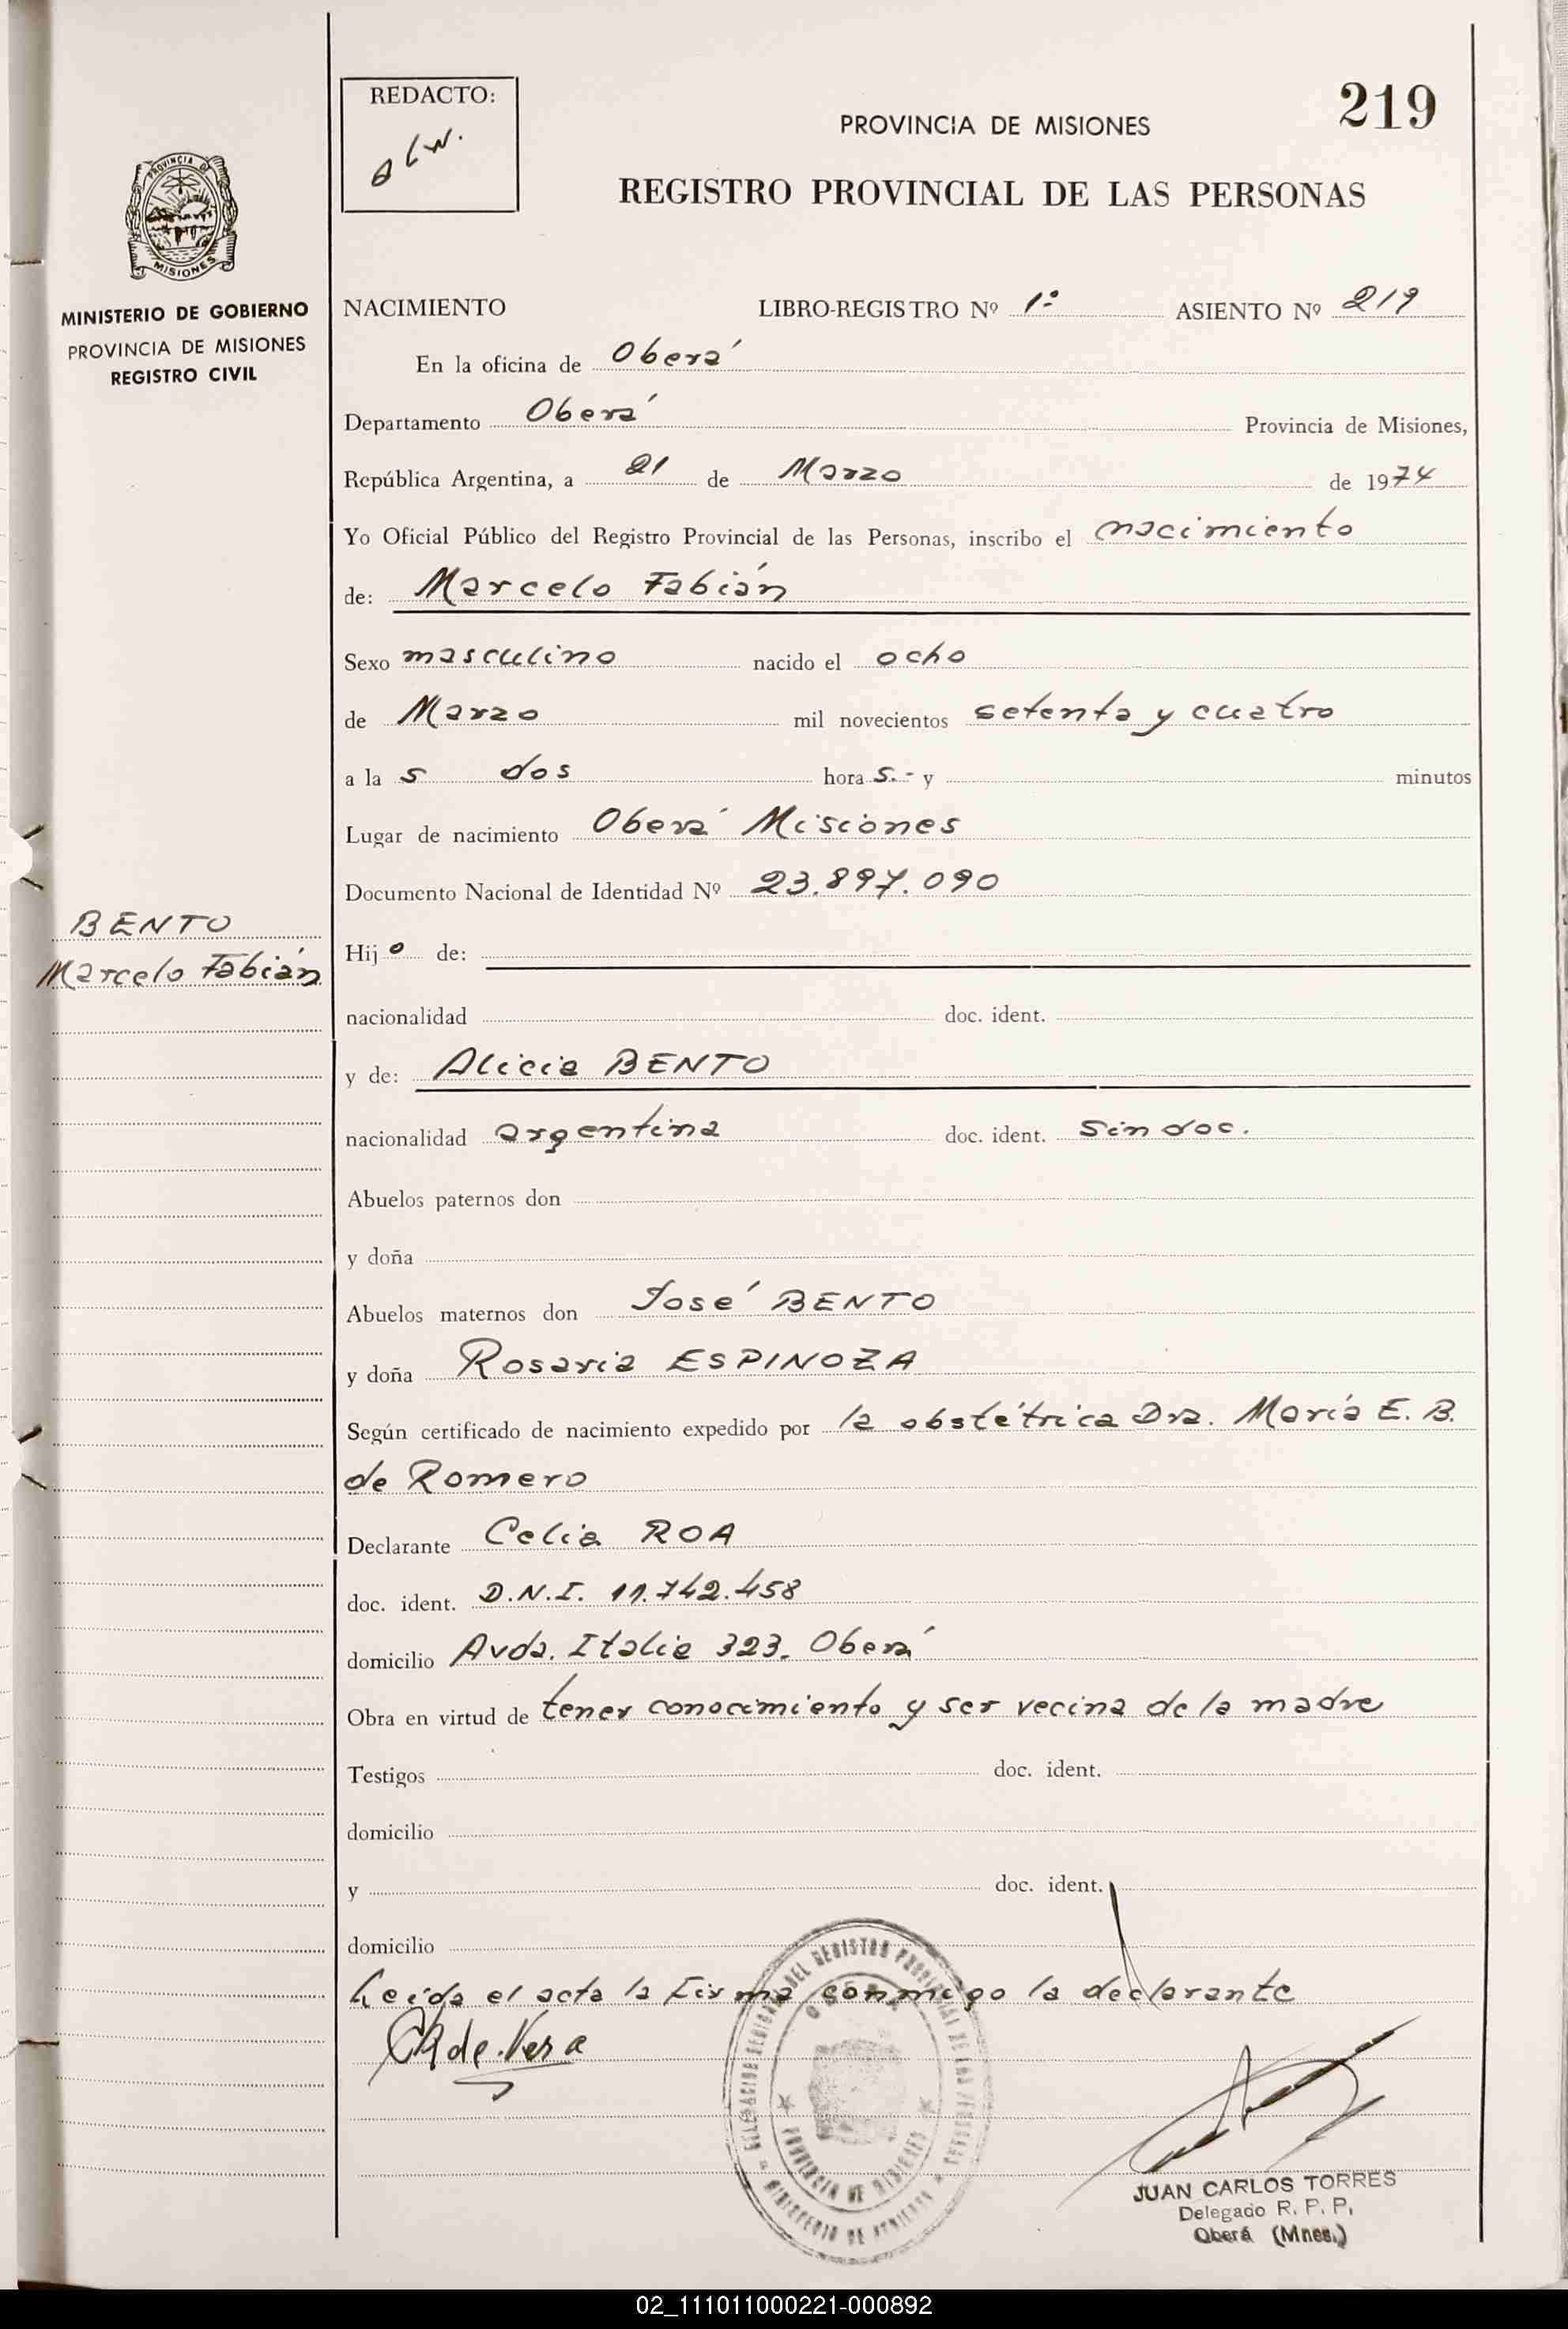 REDACTO:
219
PROVINCIA DE MISIONES
REGISTRO PROVINCIAL DE LAS PERSONAS
PROVINCIA DE
MISIONES
MINISTERIO DE GOBIERNO
PROVINCIA DE MISIONES
REGISTRO CIVIL
NACIMIENTO LIBRO-REGISTRO Nº 1º ASIENTO Nº 219
En la oficina de Oberá
Departamento Oberá Provincia de Misiones,
República Argentina, a 21 de Marzo de 1974
Yo Oficial Público del Registro Provincial de las Personas, inscribo el nacimiento
de: Marcelo Fabián
Sexo masculino nacido el ocho
de Marzo mil novecientos setenta y cuatro
a la s dos hora s.- y minutos
Lugar de nacimiento Oberá Misiones
Documento Nacional de Identidad Nº 23.897.090
BENTO
Marcelo Fabián
Hij o de:
nacionalidad doc. ident.
y de: Alicia BENTO
nacionalidad argentina doc. ident. Sin doc.
Abuelos paternos don
y doña
Abuelos maternos don José BENTO
y doña Rosaria ESPINOZA
Según certificado de nacimiento expedido por la obstétrica Dra. María E. B.
de Romero
Declarante Celia ROA
doc. ident. D.N.I. 11.742.458
domicilio Avda. Italia 323. Oberá
Obra en virtud de tener conocimiento y ser vecina de la madre
Testigos doc. ident.
domicilio
y doc. ident.
domicilio
Leida el acta la firma conmigo la declarante
CR de Vera
DELEGACION REGIONAL DEL REGISTRO PROVINCIAL DE LAS PERSONAS
OBERA
PROVINCIA DE MISIONES
MINISTERIO DE GOBIERNO
JUAN CARLOS TORRES
Delegado R. P. P.
Oberá (Mnes.)
02_111011000221-000892